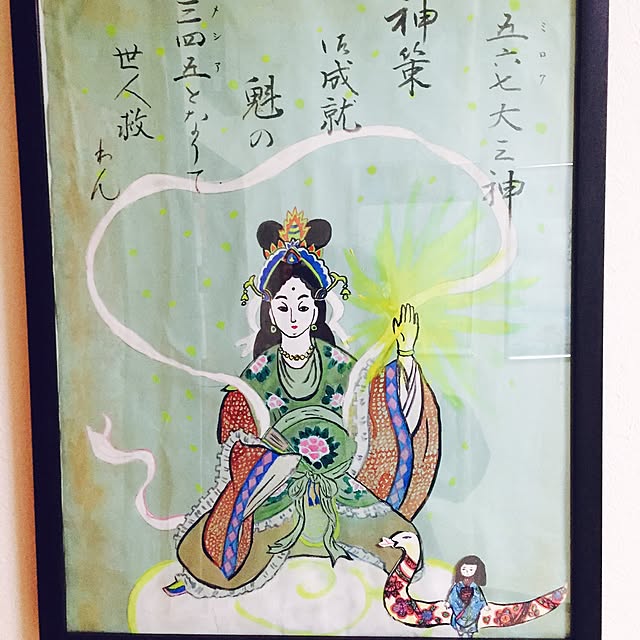 五六七大ミ神
ミロク
神策
御成就
魁の
三四五となりて
メシア
世人救わん